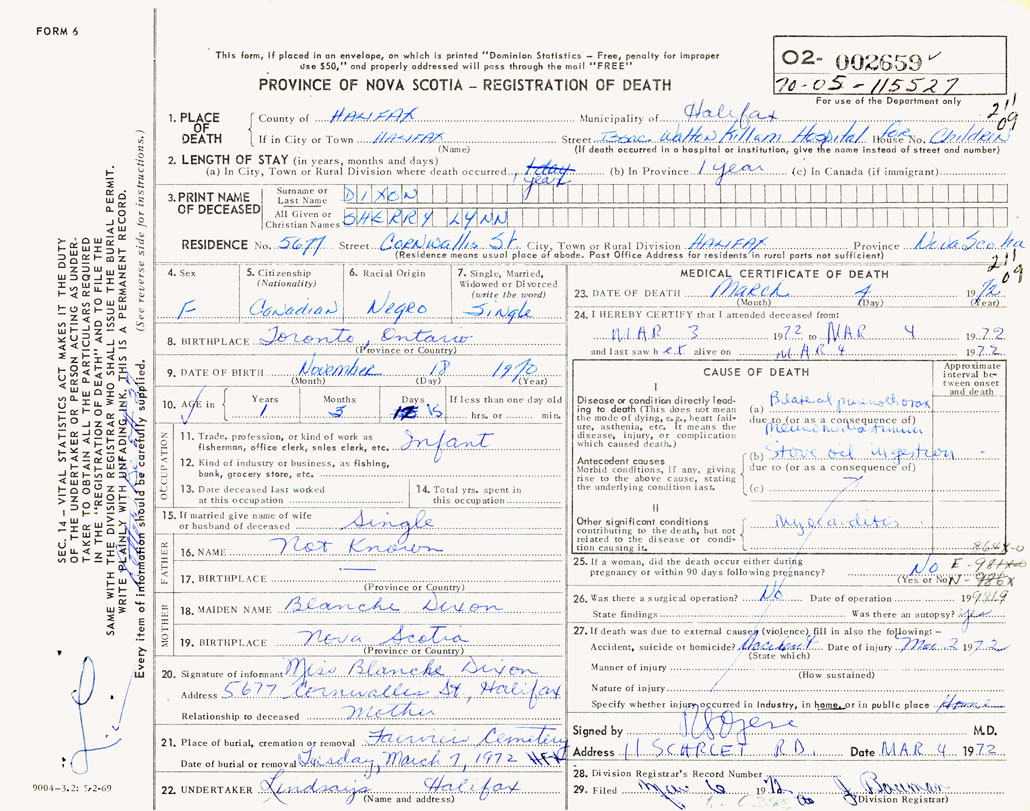 FORM 6
This form, if placed in an envelope, on which is printed "Dominion Statistics – Free, penalty for improper
use $50," and properly addressed will pass through the mail "FREE"
PROVINCE OF NOVA SCOTIA – REGISTRATION OF DEATH
O2- 002659
70-05-115527
For use of the Department only
211
09
1. PLACE OF DEATH
County of HALIFAX Municipality of Halifax
If in City or Town HALIFAX Street Isaac Walton Killam Hospital for House No. Children
(Name) (If death occurred in a hospital or institution, give the name instead of street and number)
2. LENGTH OF STAY (in years, months and days)
(a) In City, Town or Rural Division where death occurred, 1 day year (b) In Province 1 year (c) In Canada (if immigrant)
3. PRINT NAME OF DECEASED
Surname or Last Name DIXON
All Given or Christian Names SHERRY LYNN
RESIDENCE No. 5677 Street CORNWALLIS St. City, Town or Rural Division HALIFAX Province Nova Scotia
(Residence means usual place of abode. Post Office Address for residents in rural parts not sufficient)
211
09
4. Sex F
5. Citizenship (Nationality) Canadian
6. Racial Origin Negro
7. Single, Married, Widowed or Divorced (write the word) Single
8. BIRTHPLACE Toronto, Ontario
(Province or Country)
9. DATE OF BIRTH November 18 1970
(Month) (Day) (Year)
10. AGE in Years 1 Months 3 Days 15 If less than one day old hrs. or min.
OCCUPATION
11. Trade, profession, or kind of work as fisherman, office clerk, sales clerk, etc. Infant
12. Kind of industry or business, as fishing, bank, grocery store, etc.
13. Date deceased last worked at this occupation
14. Total yrs. spent in this occupation
15. If married give name of wife or husband of deceased Single
FATHER
16. NAME Not Known
17. BIRTHPLACE —
(Province or Country)
MOTHER
18. MAIDEN NAME Blanche Dixon
19. BIRTHPLACE Nova Scotia
(Province or Country)
20. Signature of informant Miss Blanche Dixon
Address 5677 Cornwallis St, Halifax
Relationship to deceased Mother
21. Place of burial, cremation or removal Fairview Cemetery
Date of burial or removal Tuesday, March 7, 1972 HFX
22. UNDERTAKER Lindsay's Halifax
(Name and address)
MEDICAL CERTIFICATE OF DEATH
23. DATE OF DEATH March 4 1972
(Month) (Day) (Year)
24. I HEREBY CERTIFY that I attended deceased from:
MAR 3 1972 to MAR 4 1972
and last saw her alive on MAR 4 1972
CAUSE OF DEATH
Approximate interval between onset and death
I
Disease or condition directly leading to death (This does not mean the mode of dying, e.g., heart failure, asthenia, etc. It means the disease, injury, or complication which caused death.)
(a) Bilateral pneumothorax
due to (or as a consequence of)
Pneumomediastinum
Antecedent causes
Morbid conditions, if any, giving rise to the above cause, stating the underlying condition last.
(b) Stove oil ingestion
due to (or as a consequence of)
(c)
II
Other significant conditions contributing to the death, but not related to the disease or condition causing it.
Myocarditis
25. If a woman, did the death occur either during pregnancy or within 90 days following pregnancy? No
(Yes or No)
N-986X
26. Was there a surgical operation? No Date of operation 19
State findings Was there an autopsy? Yes
27. If death was due to external causes (violence) fill in also the following:–
Accident, suicide or homicide? Accident Date of injury Mar 3 1972
(State which)
Manner of injury
(How sustained)
Nature of injury
Specify whether injury occurred in Industry, in home, or in public place Home
Signed by M.D.
Address 11 SCARLET RD. Date MAR 4 1972
28. Division Registrar's Record Number
29. Filed Mar 6 1972 J. Bauman
(Division Registrar)
SEC. 14 – VITAL STATISTICS ACT MAKES IT THE DUTY
OF THE UNDERTAKER OR PERSON ACTING AS UNDER-
TAKER TO OBTAIN ALL THE PARTICULARS REQUIRED
IN THE "REGISTRATION OF DEATH" AND TO FILE THE
SAME WITH THE DIVISION REGISTRAR WHO SHALL ISSUE THE BURIAL PERMIT.
WRITE PLAINLY WITH UNFADING INK. THIS IS A PERMANENT RECORD.
Every item of information should be carefully supplied. (See reverse side for instructions.)
9004-3.2: 5-2-69